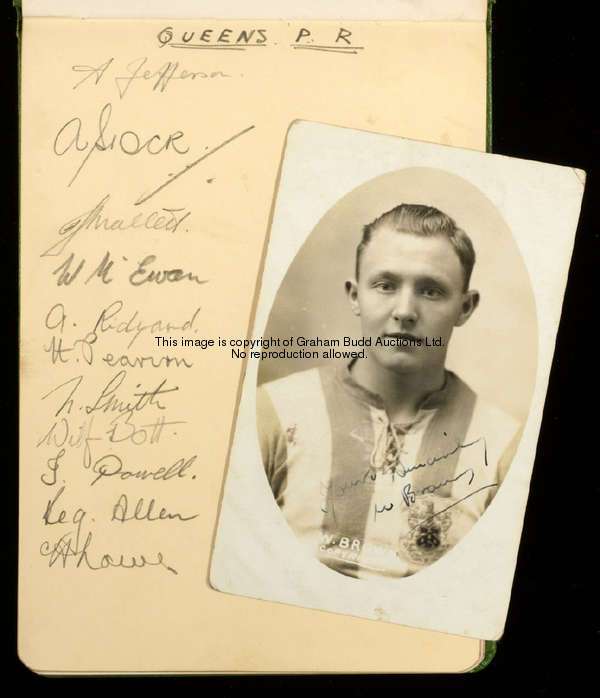 QUEENS. P. R
A Jefferson.
A Stock.
J Mallett.
W Mc Ewan
A. Ridyard.
H. Pearson
N. Smith
Wilf Bott.
I. Powell.
Reg. Allen
H Lowe
This image is copyright of Graham Budd Auctions Ltd.
No reproduction allowed.
Yours Sincerely
W Brown
W. BROWN